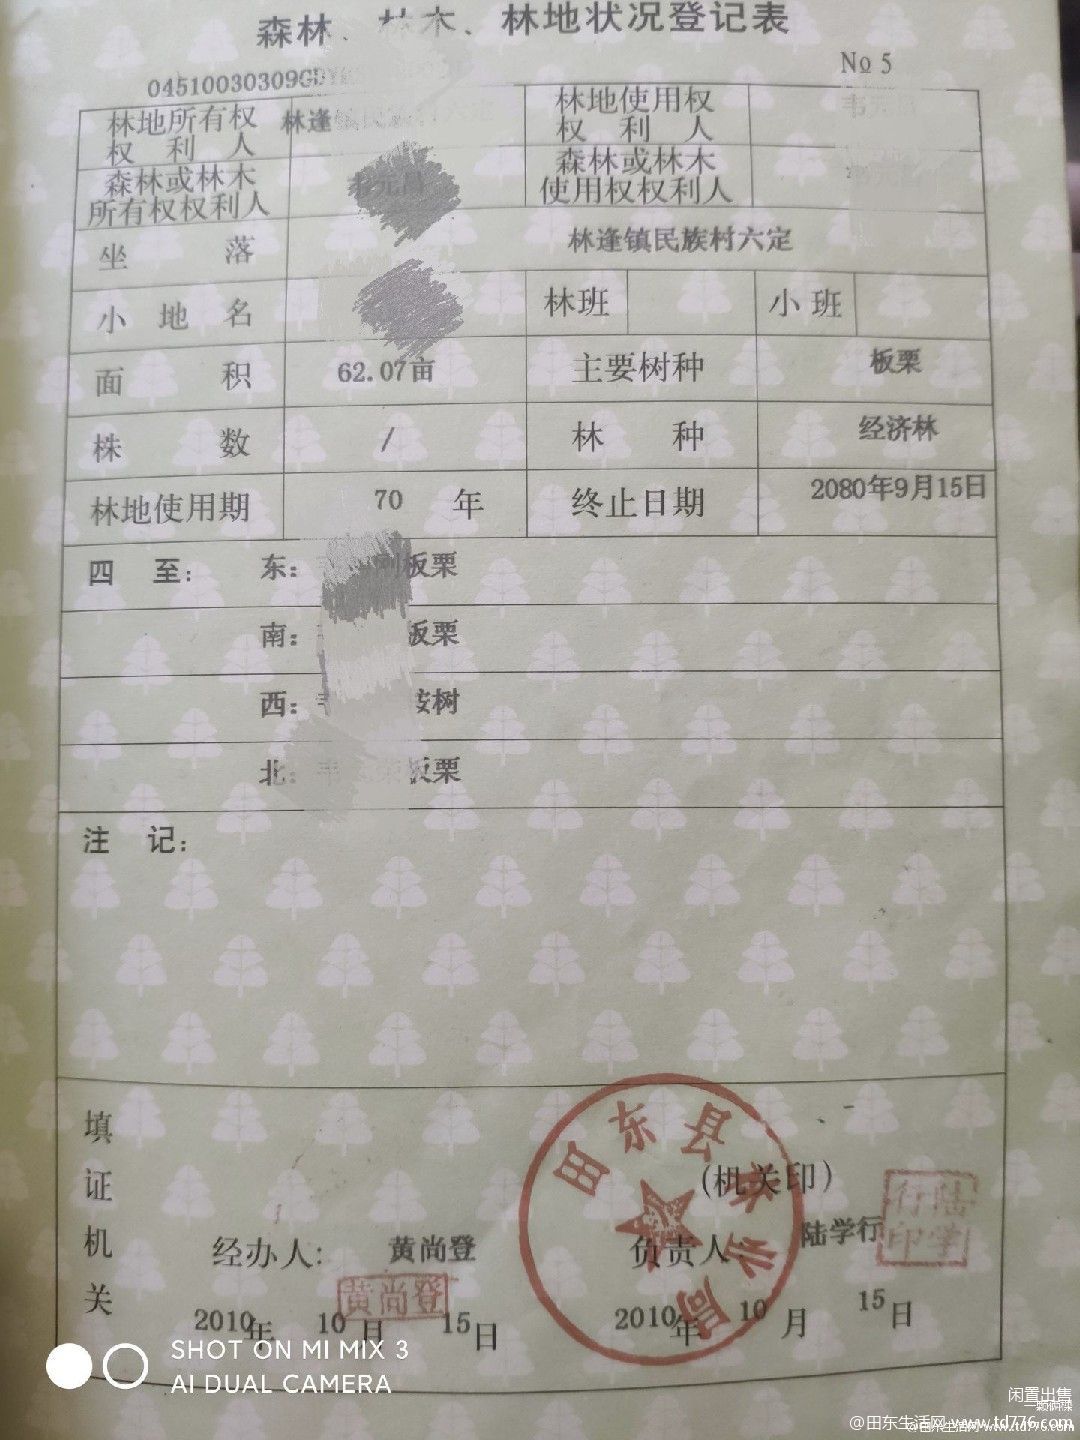 森林、林木、林地状况登记表
04510030309GDY
No 5
林地所有权权利人 林逢镇民族村六定 林地使用权权利人 韦元
森林或林木所有权权利人 森林或林木使用权权利人
坐落 林逢镇民族村六定
小地名 林班 小班
面积 62.07亩 主要树种 板栗
株数 / 林种 经济林
林地使用期 70 年 终止日期 2080年9月15日
四至: 东: 板栗
南: 板栗
西: 桉树
北: 板栗
注记:
填证机关
田东县林业局
(机关印)
经办人: 黄尚登 负责人 陆学行
黄尚登
陆学行印
2010年 10月 15日 2010年 10月 15日
SHOT ON MI MIX 3
AI DUAL CAMERA
闲置出售
@田东生活网 www.td776.com